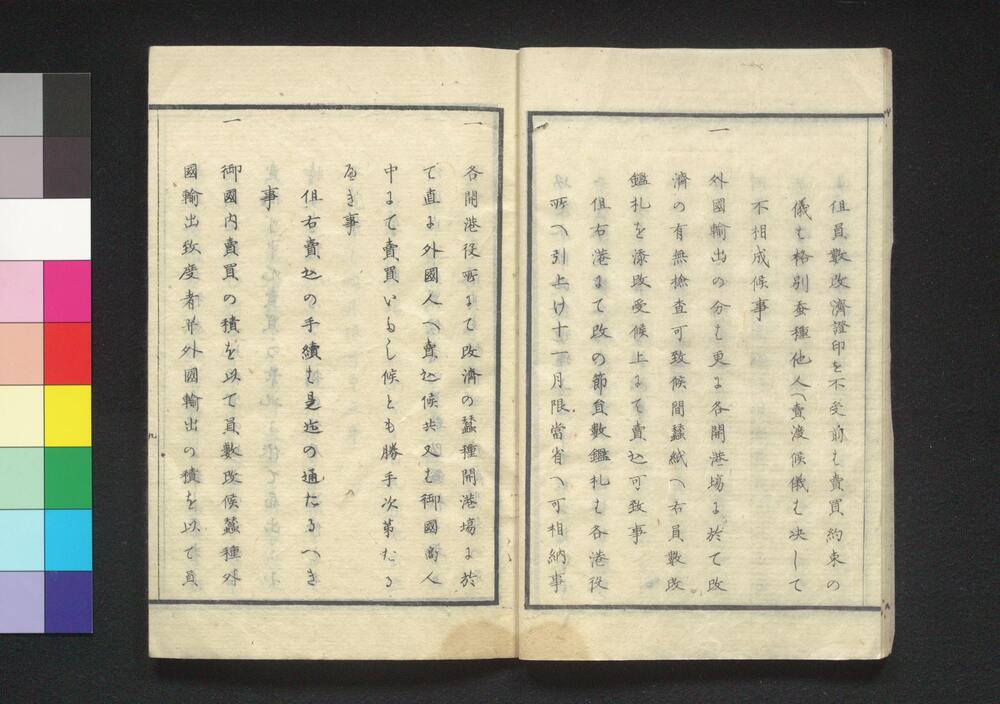 但員数改済證印を不受前も賣買約束の
儀も格別蚕種他人へ賣渡候儀も决して
不相成候事
一
外國輸出の分も更に各開港場に於て改
濟の有無撿査可致候間蠶紙へ右員數改
鑑札を添改受候上にて賣込可致事
但右港にて改の節員數鑑札も各港役
所へ引上け十一月限當省へ可相納事
一
各開港役所にて改濟の蠶種開港場に於
て直に外國人へ賣込候共又も御國商人
中にて賣買いたし候とも勝手次第たる
へき事
但右賣込の手續も是迄の通たるへき
事
一
御國内賣買の積を以て員數改候蠶種外
國輸出致度者並外國輸出の積を以て員